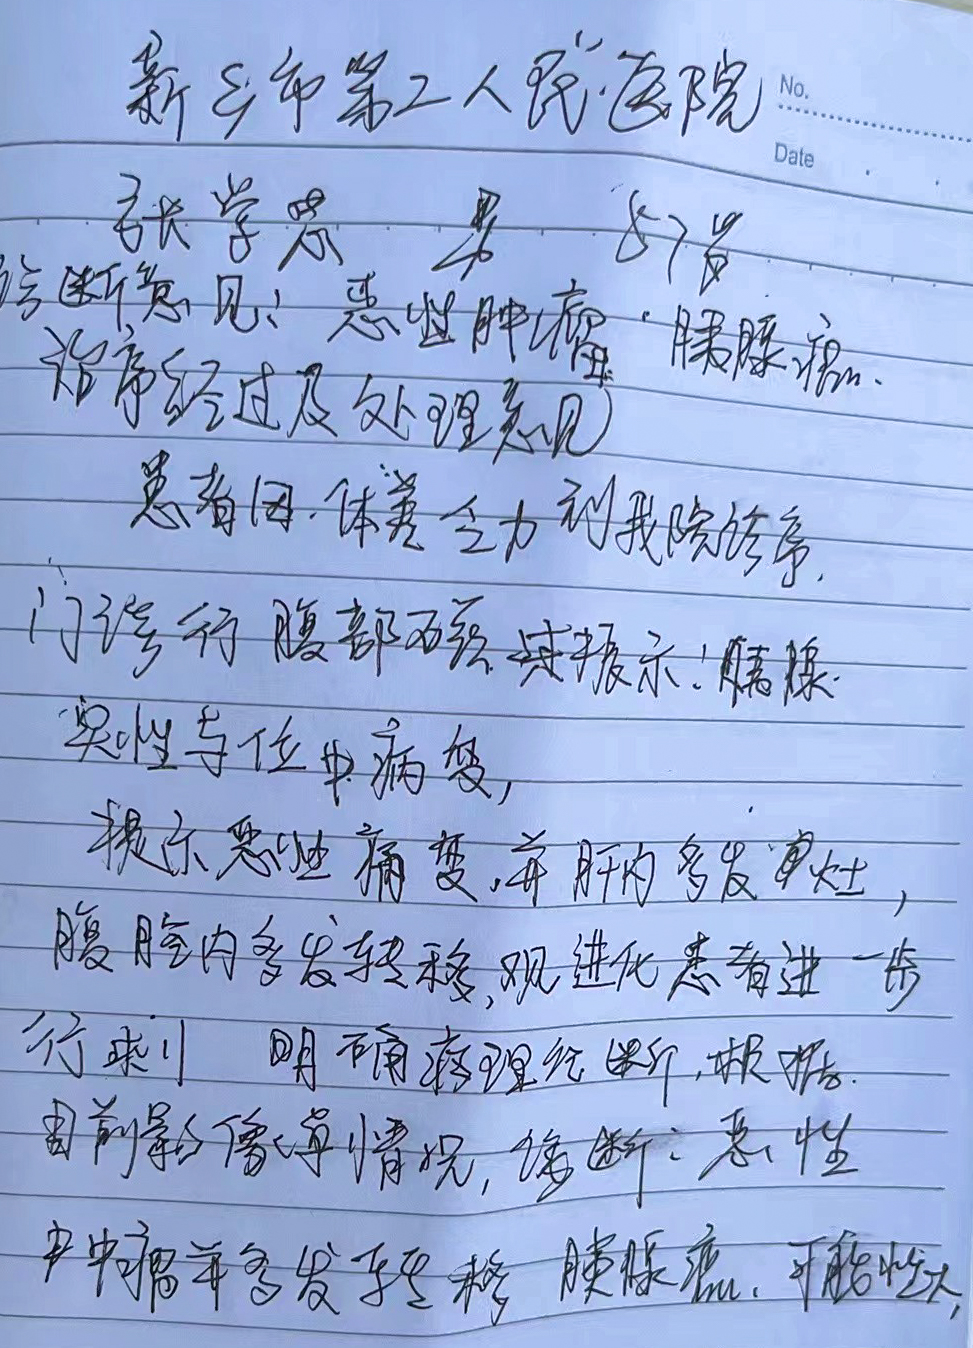 新乡市第二人民医院
No.
Date
张学思 男 57岁
诊断意见：恶性肿瘤·胰腺癌.
治疗经过及处理意见
患者因.体差乏力到我院诊疗.
门诊行腹部 提示：胰腺.
占位 病变,
提示恶性病变.并肝内多发 灶,
腹腔内多发转移, 患者进一步
行 明确病理 断,根据.
目前影像 情况, 断：恶性
瘤并多发转移 胰腺癌.可能性大,